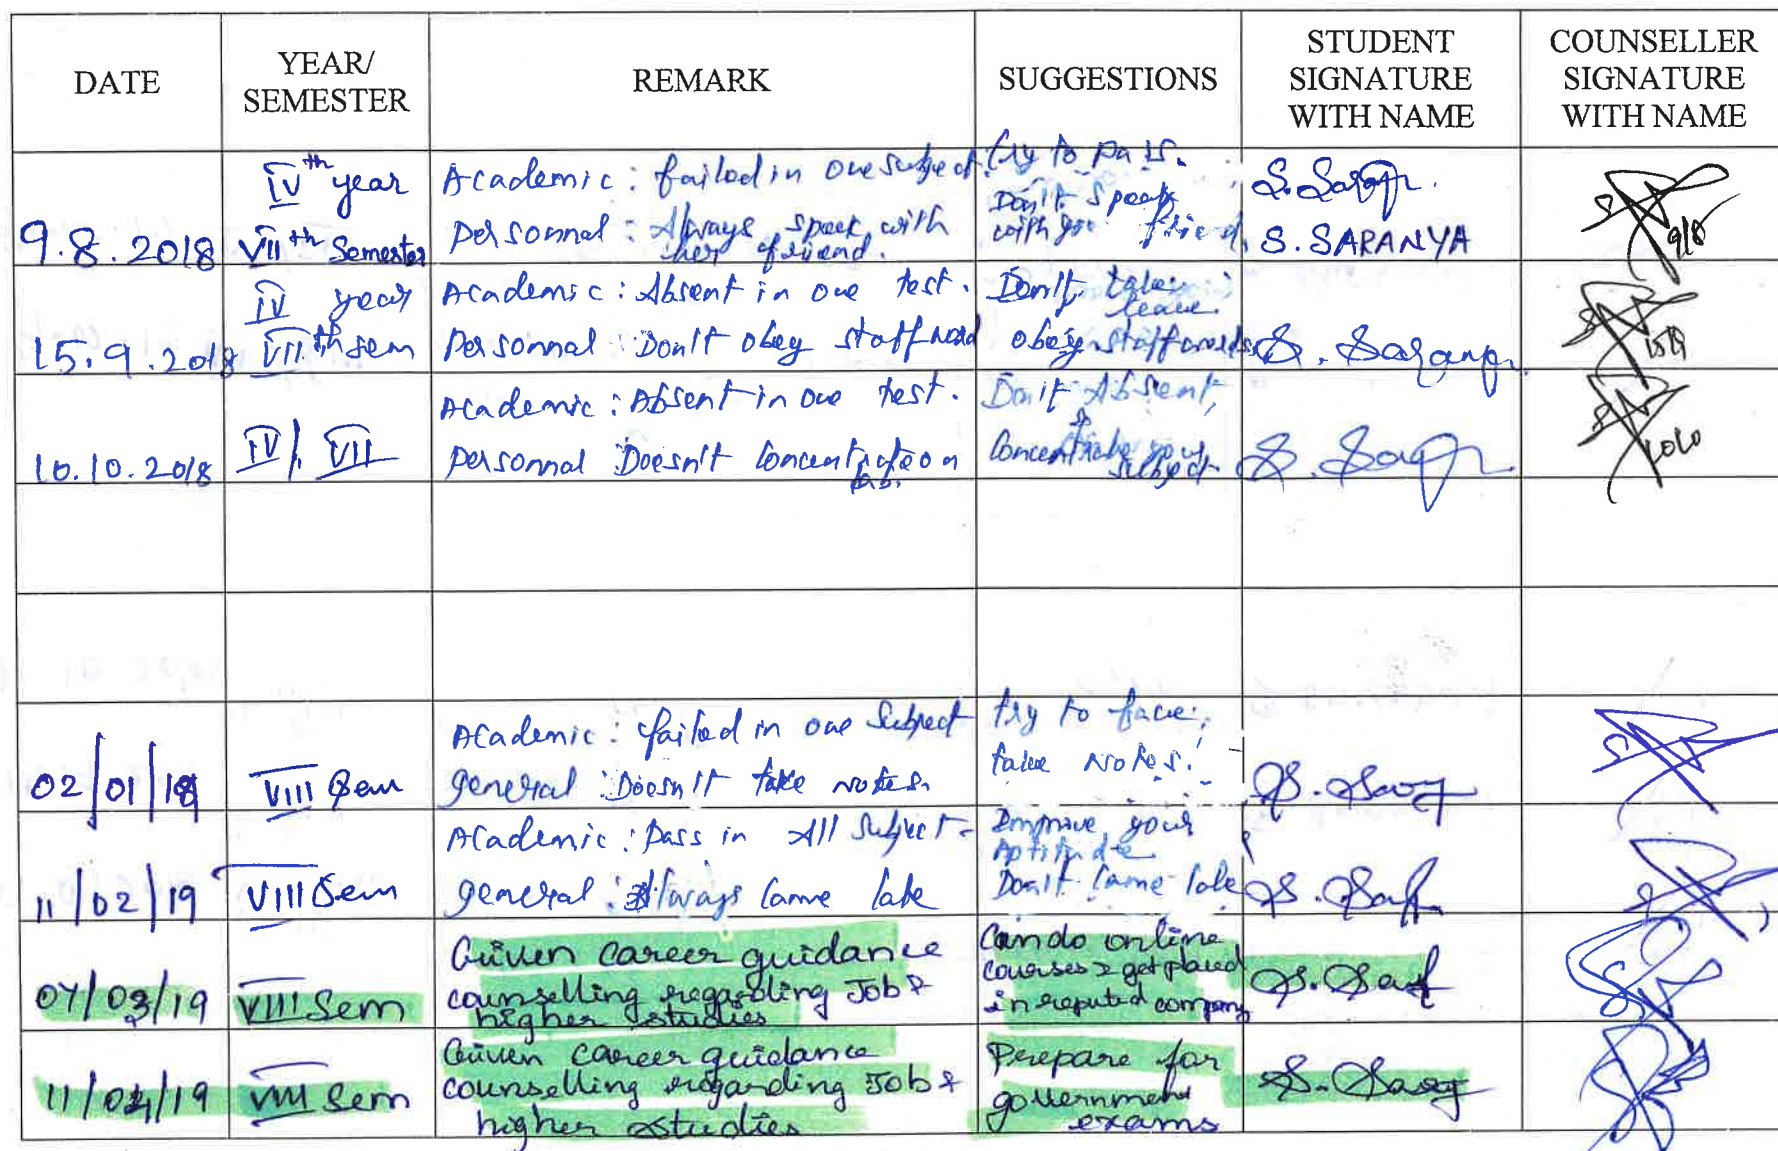 DATE
YEAR/
SEMESTER
REMARK
SUGGESTIONS
STUDENT
SIGNATURE
WITH NAME
COUNSELLER
SIGNATURE
WITH NAME
9.8.2018
IVth year
VIIth Semester
Academic : failed in one subject
Personnal : Always speek with
her friend.
try to pass.
Don't speak
with your friend.
S. SARANYA
9/8
15.9.2018
IV year
VIIth sem
Academic : Absent in one test.
Personnal : Don't obey staff word
Don't take
leave.
obey staff words
S. Saranya
15/9
10.10.2018
IV/ VII
Academic : Absent in one test.
Personnal Doesn't Concentration
Don't Absent,
Concentrate your
subject
10/10
02/01/19
VIII Sem
Academic : failed in one Subject
general : Doesn't take notes.
try to face,
take Notes.
11/02/19
VIII Sem
Academic : Pass in All Subject-
general : Always Came late
Improve your
Aptitude
Don't Came late
07/03/19
VIII Sem
Given career guidance
counselling regarding Job &
higher studies
Can do online
courses & get placed
in reputed company
11/04/19
VIII Sem
Given career guidance
counselling regarding Job &
higher studies
Prepare for
government
exams